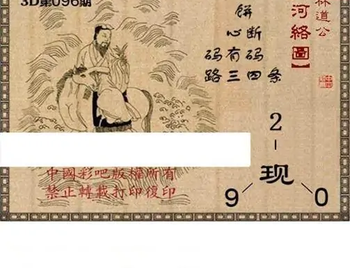 3D第096期
林道公
河络圖
條断码四
餅心有三码路
2
现
9 0
中國彩吧版權所有
禁止轉載打印復印